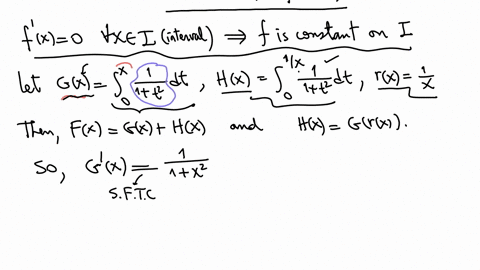 f'(x)=0 ∀x∈I (interval) ⇒ f is constant on I
let G(x) = ∫₀ˣ 1/(1+t²) dt , H(x) = ∫₀^(1/x) 1/(1+t²) dt , r(x) = 1/x
Then, F(x) = G(x) + H(x) and H(x) = G(r(x)).
So, G'(x) = 1/(1+x²)
S.F.T.C